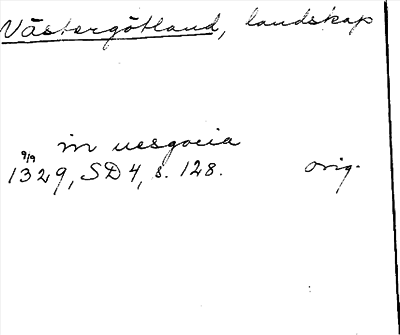 Västergötland, landskap
in uesgocia
9/9
1329, SD 4, s. 128. orig.